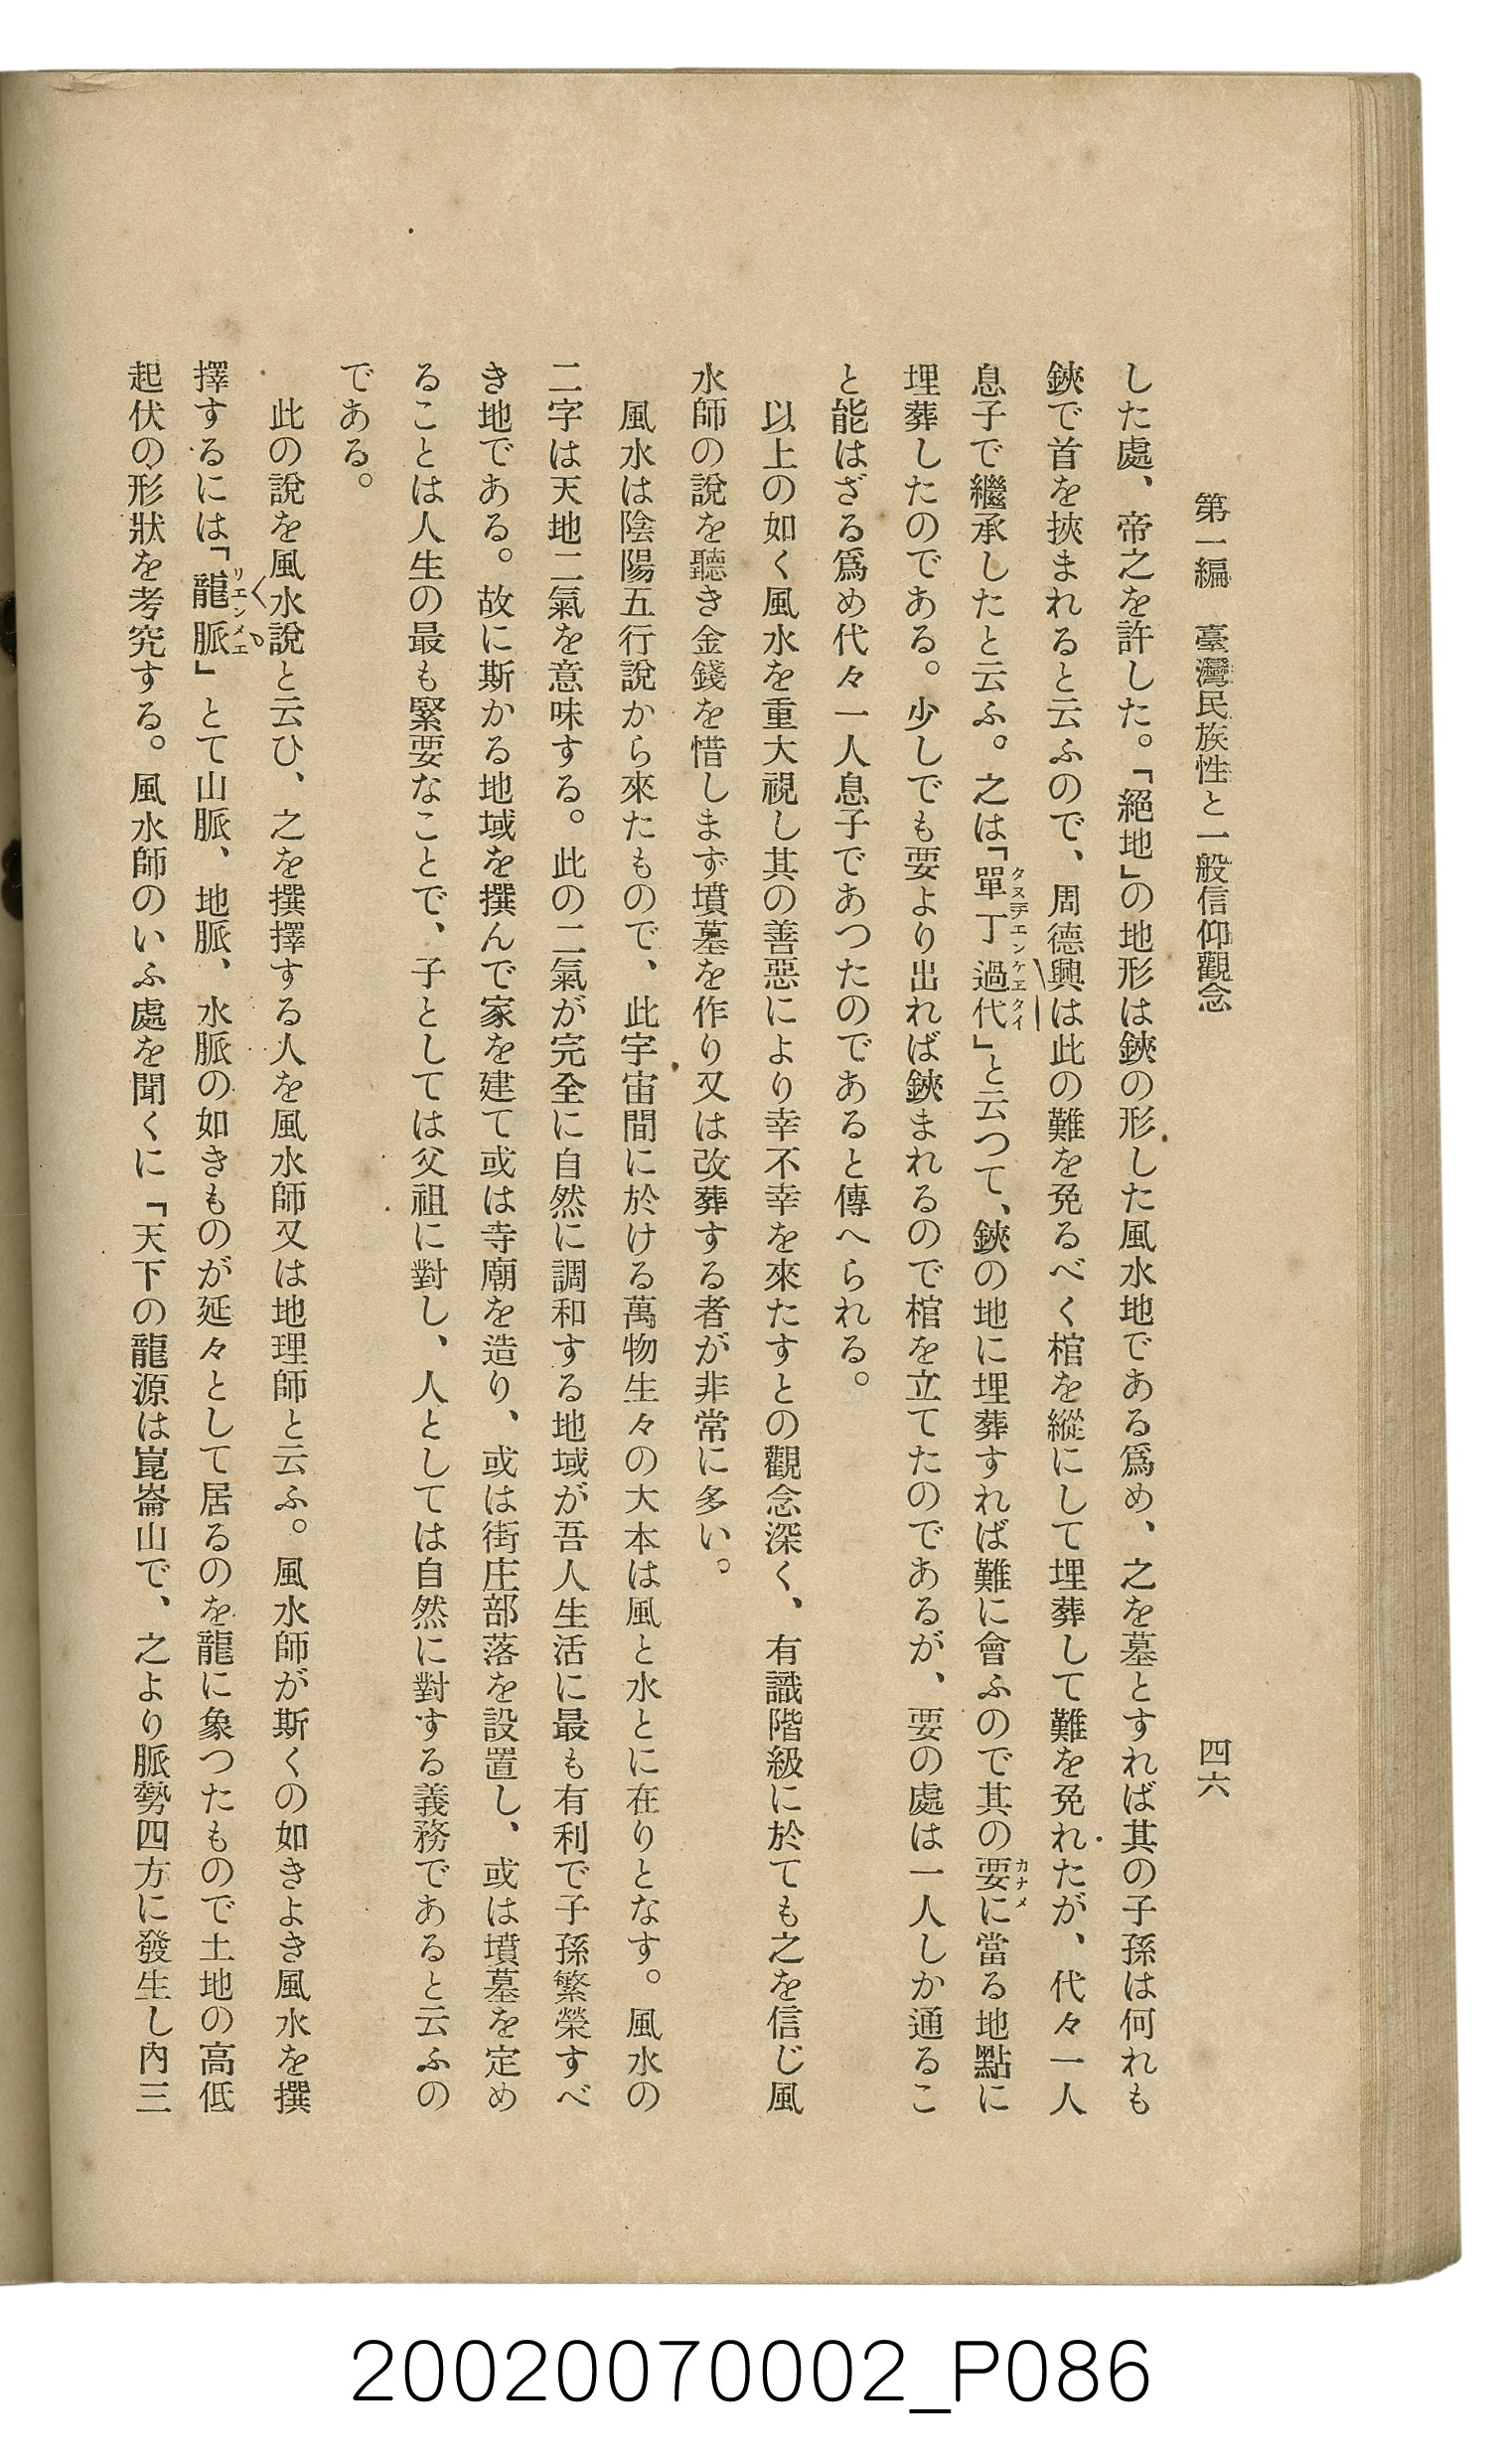 第一編　臺灣民族性と一般信仰觀念
四六
した處、帝之を許した。「絕地」の地形は鋏の形した風水地である爲め、之を墓とすれば其の子孫は何れも
鋏で首を挾まれると云ふので、周德興は此の難を免るべく棺を縱にして埋葬して難を免れたが、代々一人
息子で繼承したと云ふ。之は「單丁過代」と云つて、鋏の地に埋葬すれば難に會ふので其の要に當る地點に
埋葬したのである。少しでも要より出れば鋏まれるので棺を立てたのであるが、要の處は一人しか通るこ
と能はざる爲め代々一人息子であつたのであると傳へられる。
以上の如く風水を重大視し其の善惡により幸不幸を來たすとの觀念深く、有識階級に於ても之を信じ風
水師の說を聽き金錢を惜しまず墳墓を作り又は改葬する者が非常に多い。
風水は陰陽五行說から來たもので、此宇宙間に於ける萬物生々の大本は風と水とに在りとなす。風水の
二字は天地二氣を意味する。此の二氣が完全に自然に調和する地域が吾人生活に最も有利で子孫繁榮すべ
き地である。故に斯かる地域を撰んで家を建て或は寺廟を造り、或は街庄部落を設置し、或は墳墓を定め
ることは人生の最も緊要なことで、子としては父祖に對し、人としては自然に對する義務であると云ふの
である。
此の說を風水說と云ひ、之を撰擇する人を風水師又は地理師と云ふ。風水師が斯くの如きよき風水を撰
擇するには「龍脈」とて山脈、地脈、水脈の如きものが延々として居るのを龍に象つたもので土地の高低
起伏の形狀を考究する。風水師のいふ處を聞くに「天下の龍源は崑崙山で、之より脈勢四方に發生し內三
20020070002_P086